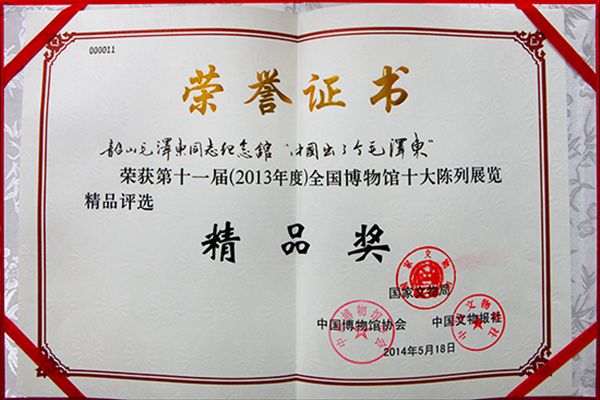 000011
荣誉证书
韶山毛澤東同志纪念館“中國出了个毛澤東”
荣获第十一届(2013年度)全国博物馆十大陈列展览
精品评选
精品奖
国家文物局
国家文物局
中国博物馆协会 中国文物报社
2014年5月18日